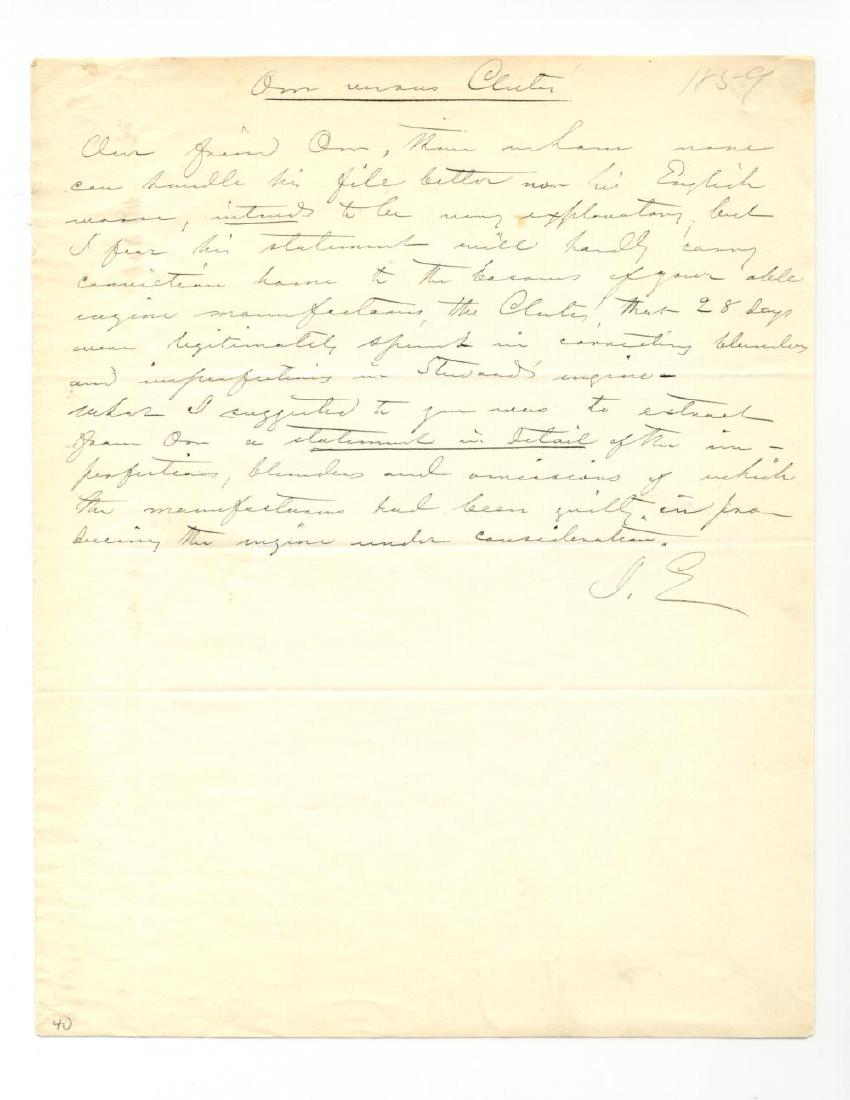 Orr versus Clutes' 1859
Our friend Orr, than whom none
can handle his file better nor his English
worse, intends to be very explanatory, but
I fear his statement will hardly carry
conviction home to the bosoms of your able
engine manufacturers, the Clutes', that 28 days
were legitimately spent in correcting blunders
and imperfections in engine –
what I suggested to you was to extract
from Orr a statement in detail of the im –
perfections, blunders and omissions of which
the manufacturers had been guilty in pro –
ducing the engine under consideration.
J. E
40